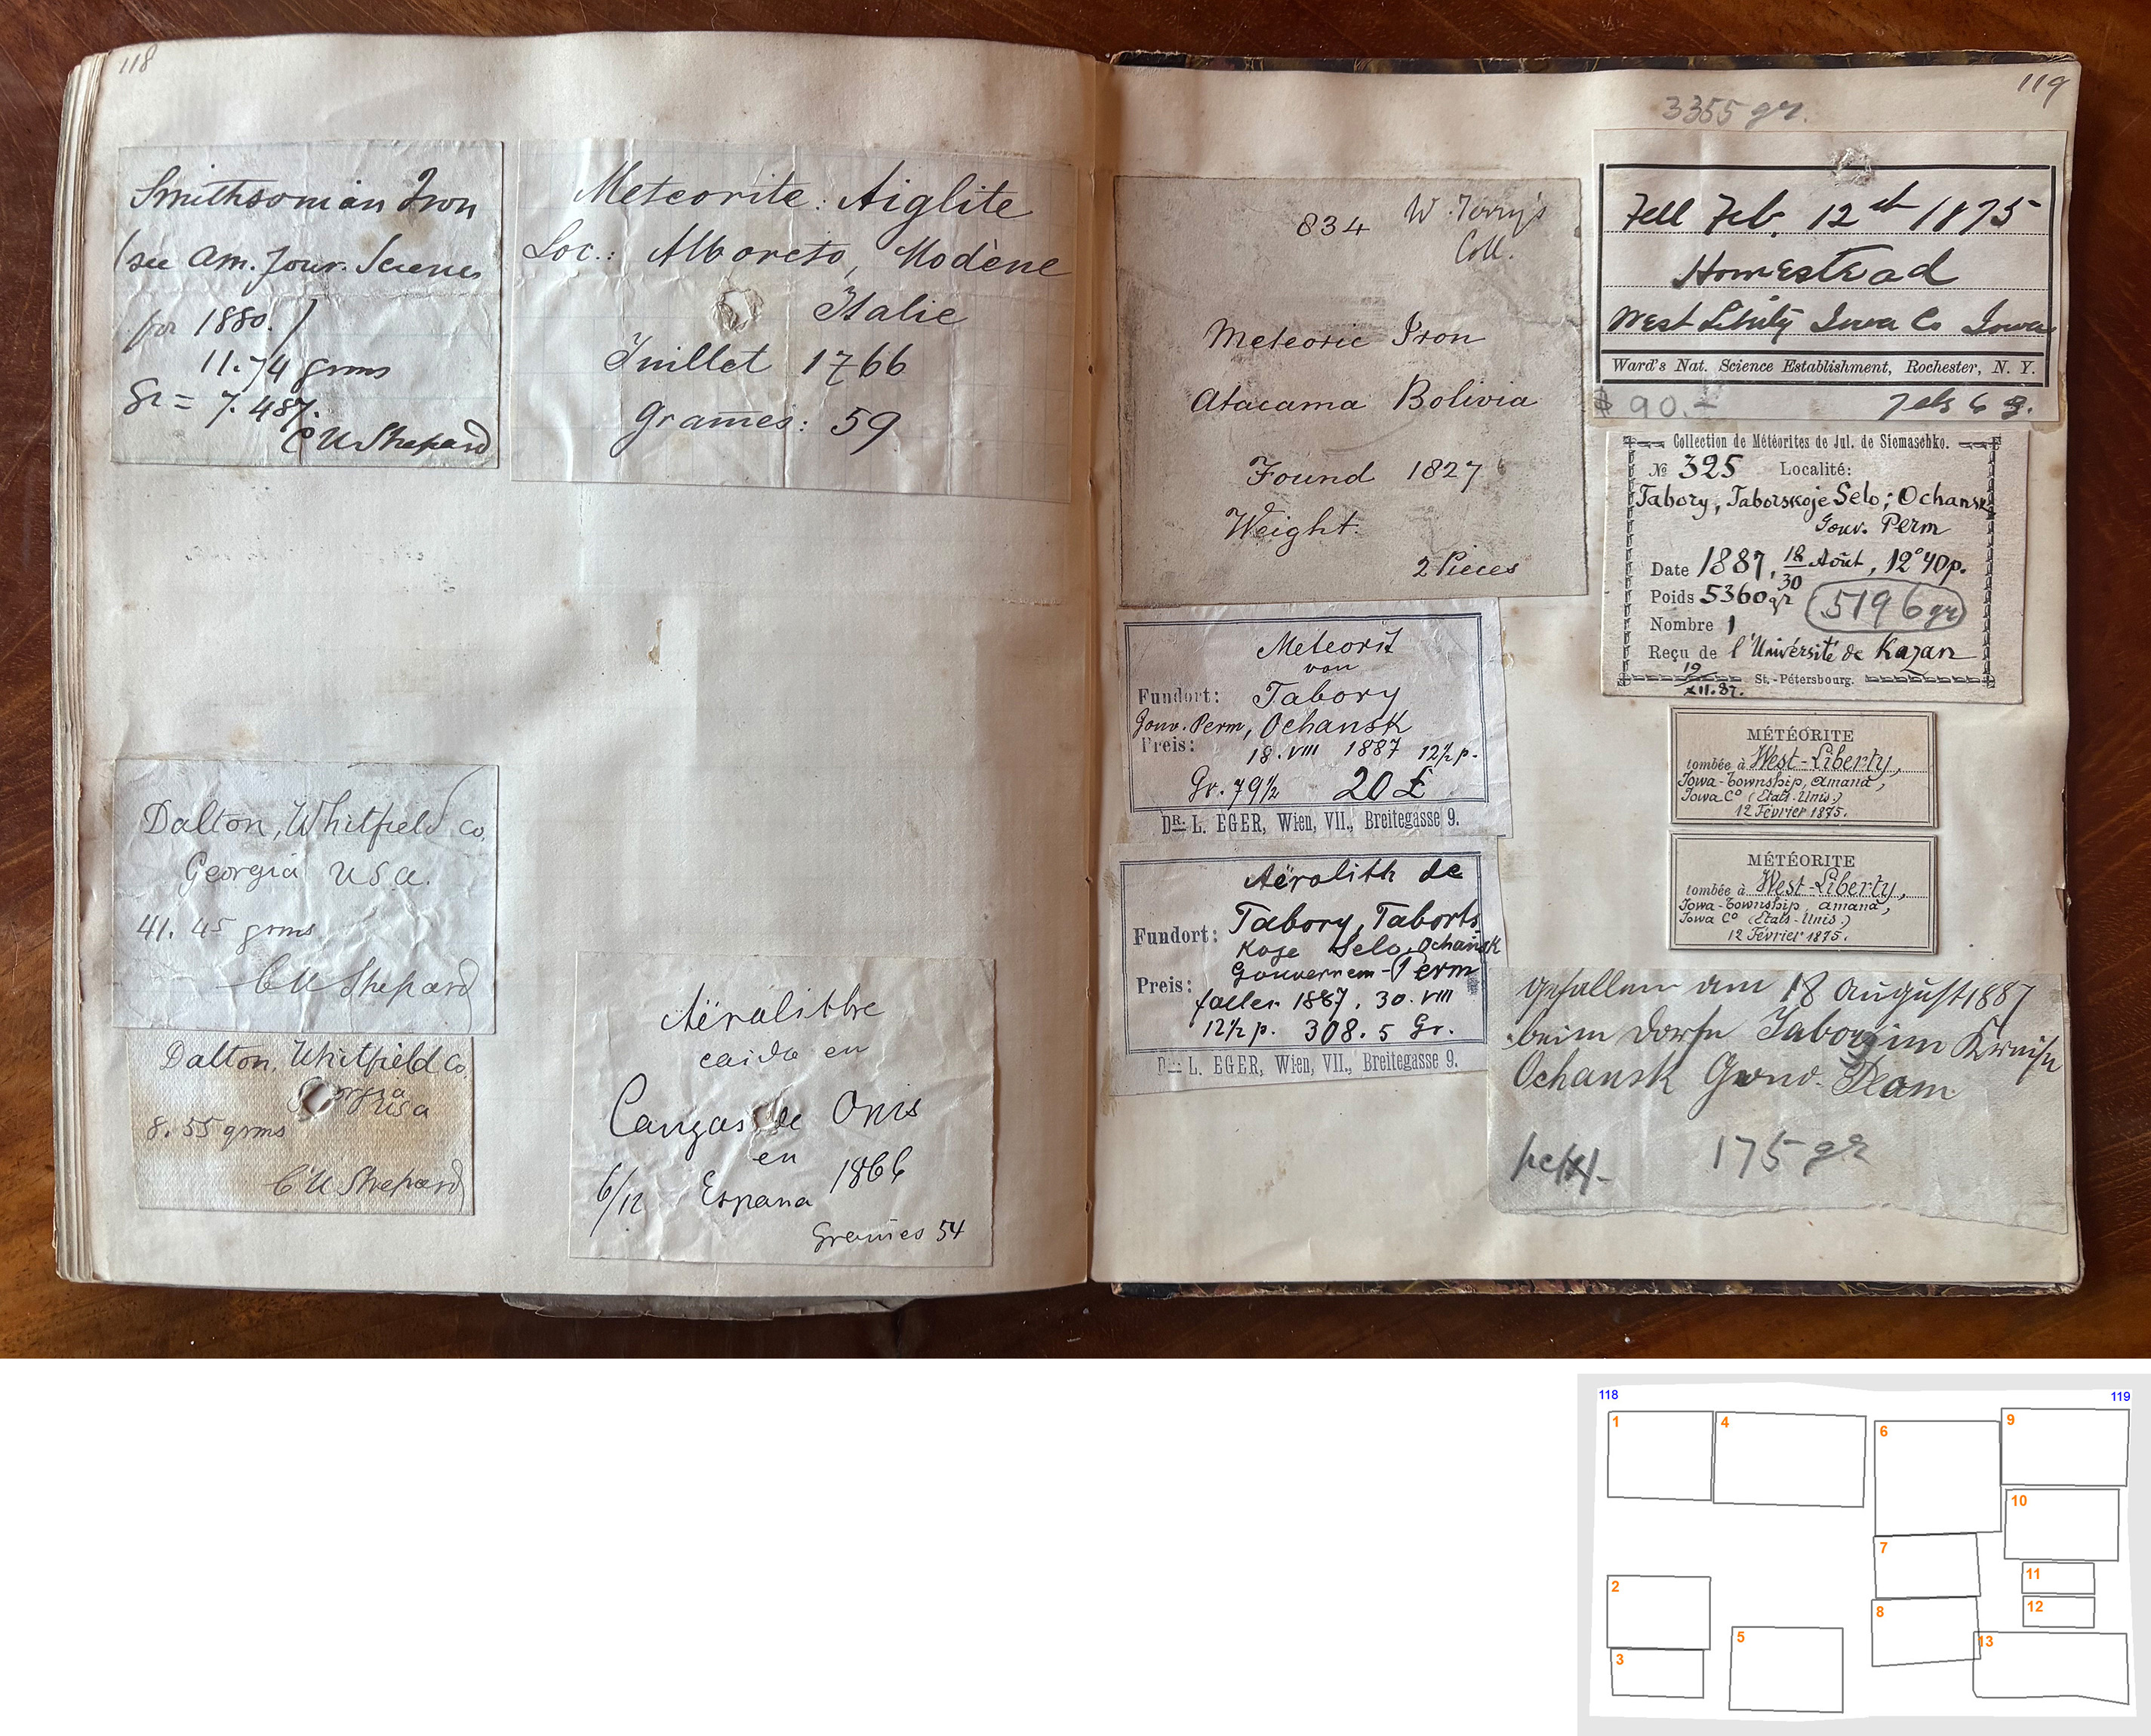 118
Smithsonian Iron
(see Am. Jour. Science
for 1880.)
11.74 grms
Gr = 7.487.
C U Shepard
Dalton, Whitfield Co,
Georgia U S a.
41.45 grms
C U Shepard
Dalton, Whitfield Co,
Georgia
USa
8.55 grms
C U Shepard
Meteorite: Aiglite
Loc.: Alboreto, Modène
Italie
Juillet 1766
grames: 59
Aërolithe
caida en
Cangas de Onis
en
6/12 Espana 1866
Grames 54
119
3355 gr.
834 W. Terry's
Coll.
Meteoric Iron
Atacama Bolivia
Found 1827
Weight.
2 Pieces
Meteorit
von
Fundort: Tabory
Gouv. Perm, Ochansk
Preis: 18. VIII 1887 12½ p.
Gr. 79½ 20 £
DR. L. EGER, Wien, VII., Breitegasse 9.
Aërolith de
Fundort: Tabory, Taborts
Koge Selo, Ochansk
Preis: Gouvernem-Perm
faller 1887. 30. VIII
12½ p. 308.5 Gr.
DR. L. EGER, Wien, VII., Breitegasse 9.
Fell Feb. 12th 1875
Homestead
West Liberty Iowa Co Iowa
Ward's Nat. Science Establishment, Rochester, N. Y.
$90.-
Collection de Météorites de Jul. de Siemaschko.
№ 325 Localité:
Tabory, Taborskoje Selo; Ochansk
Gouv. Perm
Date 1887, 18/30 Août, 12°40p.
Poids 5360 gr 5196 gr
Nombre 1
Reçu de l'Université de Kazan
19/XII.87. St.-Pétersbourg.
MÉTÉORITE
tombée à West-Liberty,
Iowa-Township, Amana,
Iowa Co (Etats-Unis.)
12 Février 1875.
MÉTÉORITE
tombée à West-Liberty,
Iowa-Township, Amana,
Iowa Co (Etats-Unis.)
12 Février 1875.
Gefallen am 18 August 1887
beim Dorfe Tabory im Kreise
Ochansk Gouv. Pam
175 gr
118
119
1
4
6
9
10
7
11
2
8
12
5
13
3